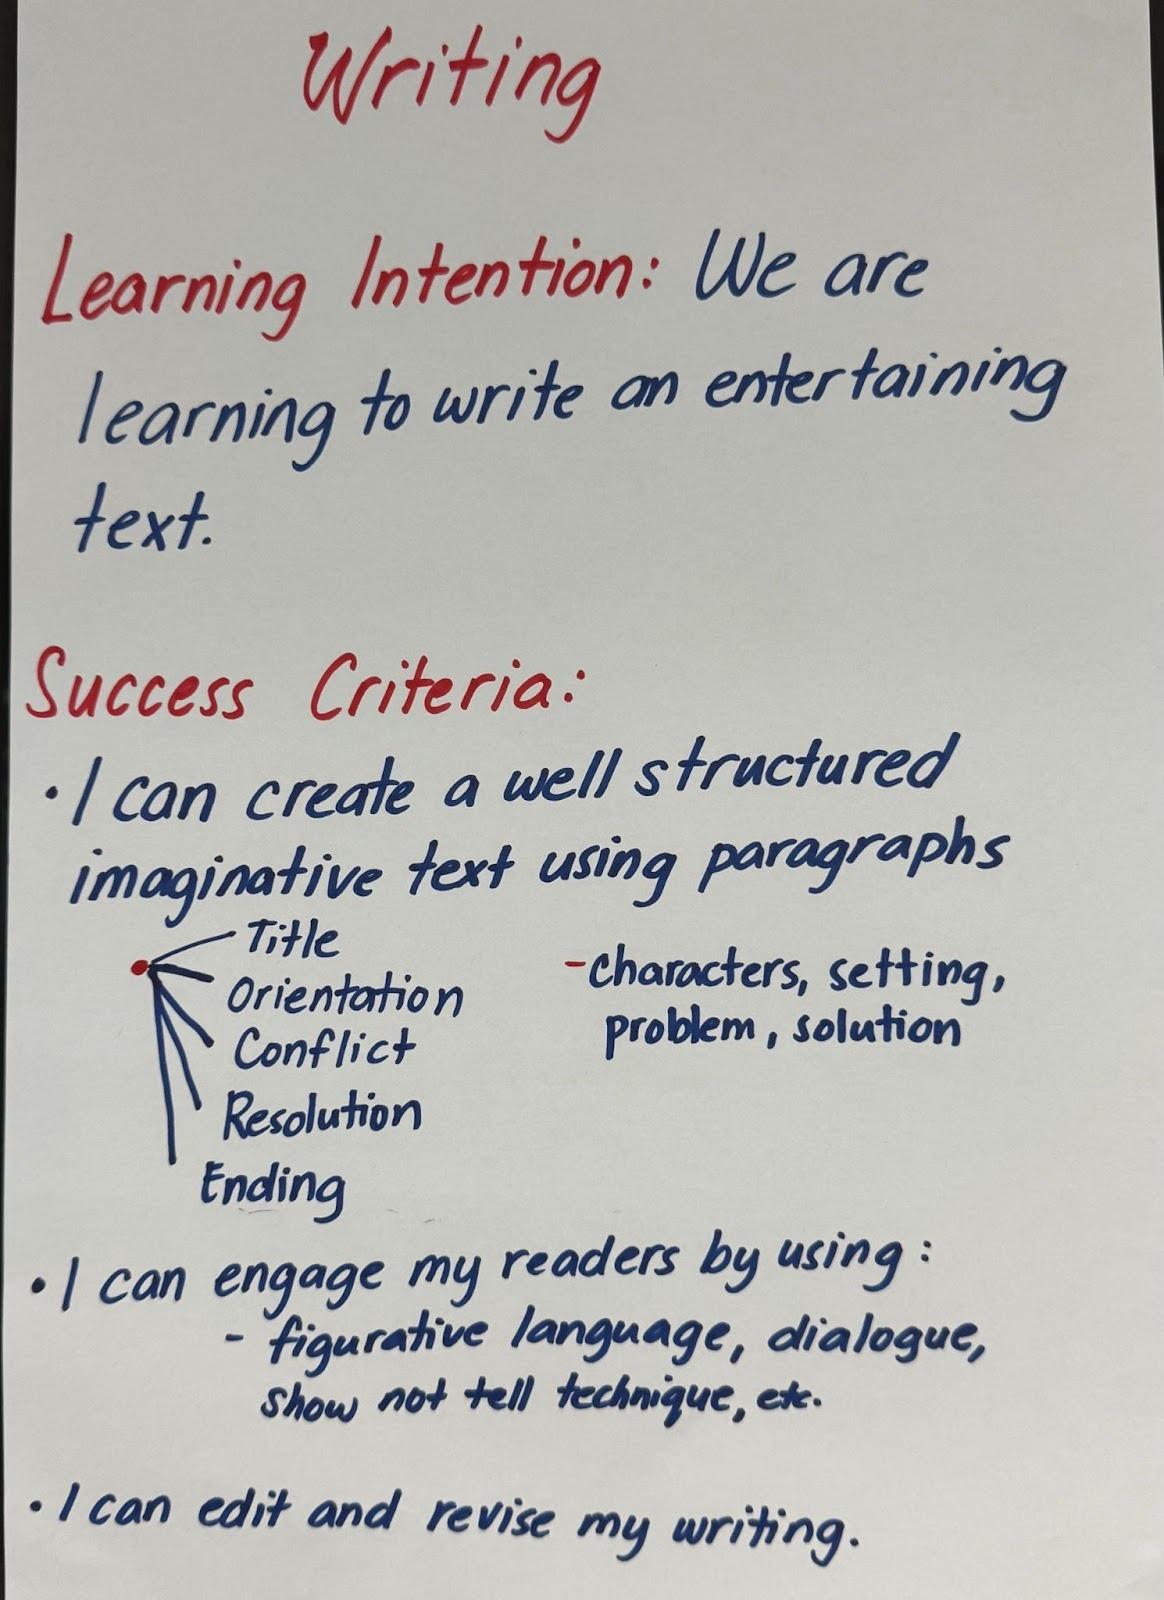 Writing
Learning Intention: We are
learning to write an entertaining
text.
Success Criteria:
• I can create a well structured
imaginative text using paragraphs
Title
Orientation
Conflict
Resolution
Ending
- characters, setting,
problem, solution
• I can engage my readers by using:
- figurative language, dialogue,
show not tell technique, etc.
• I can edit and revise my writing.